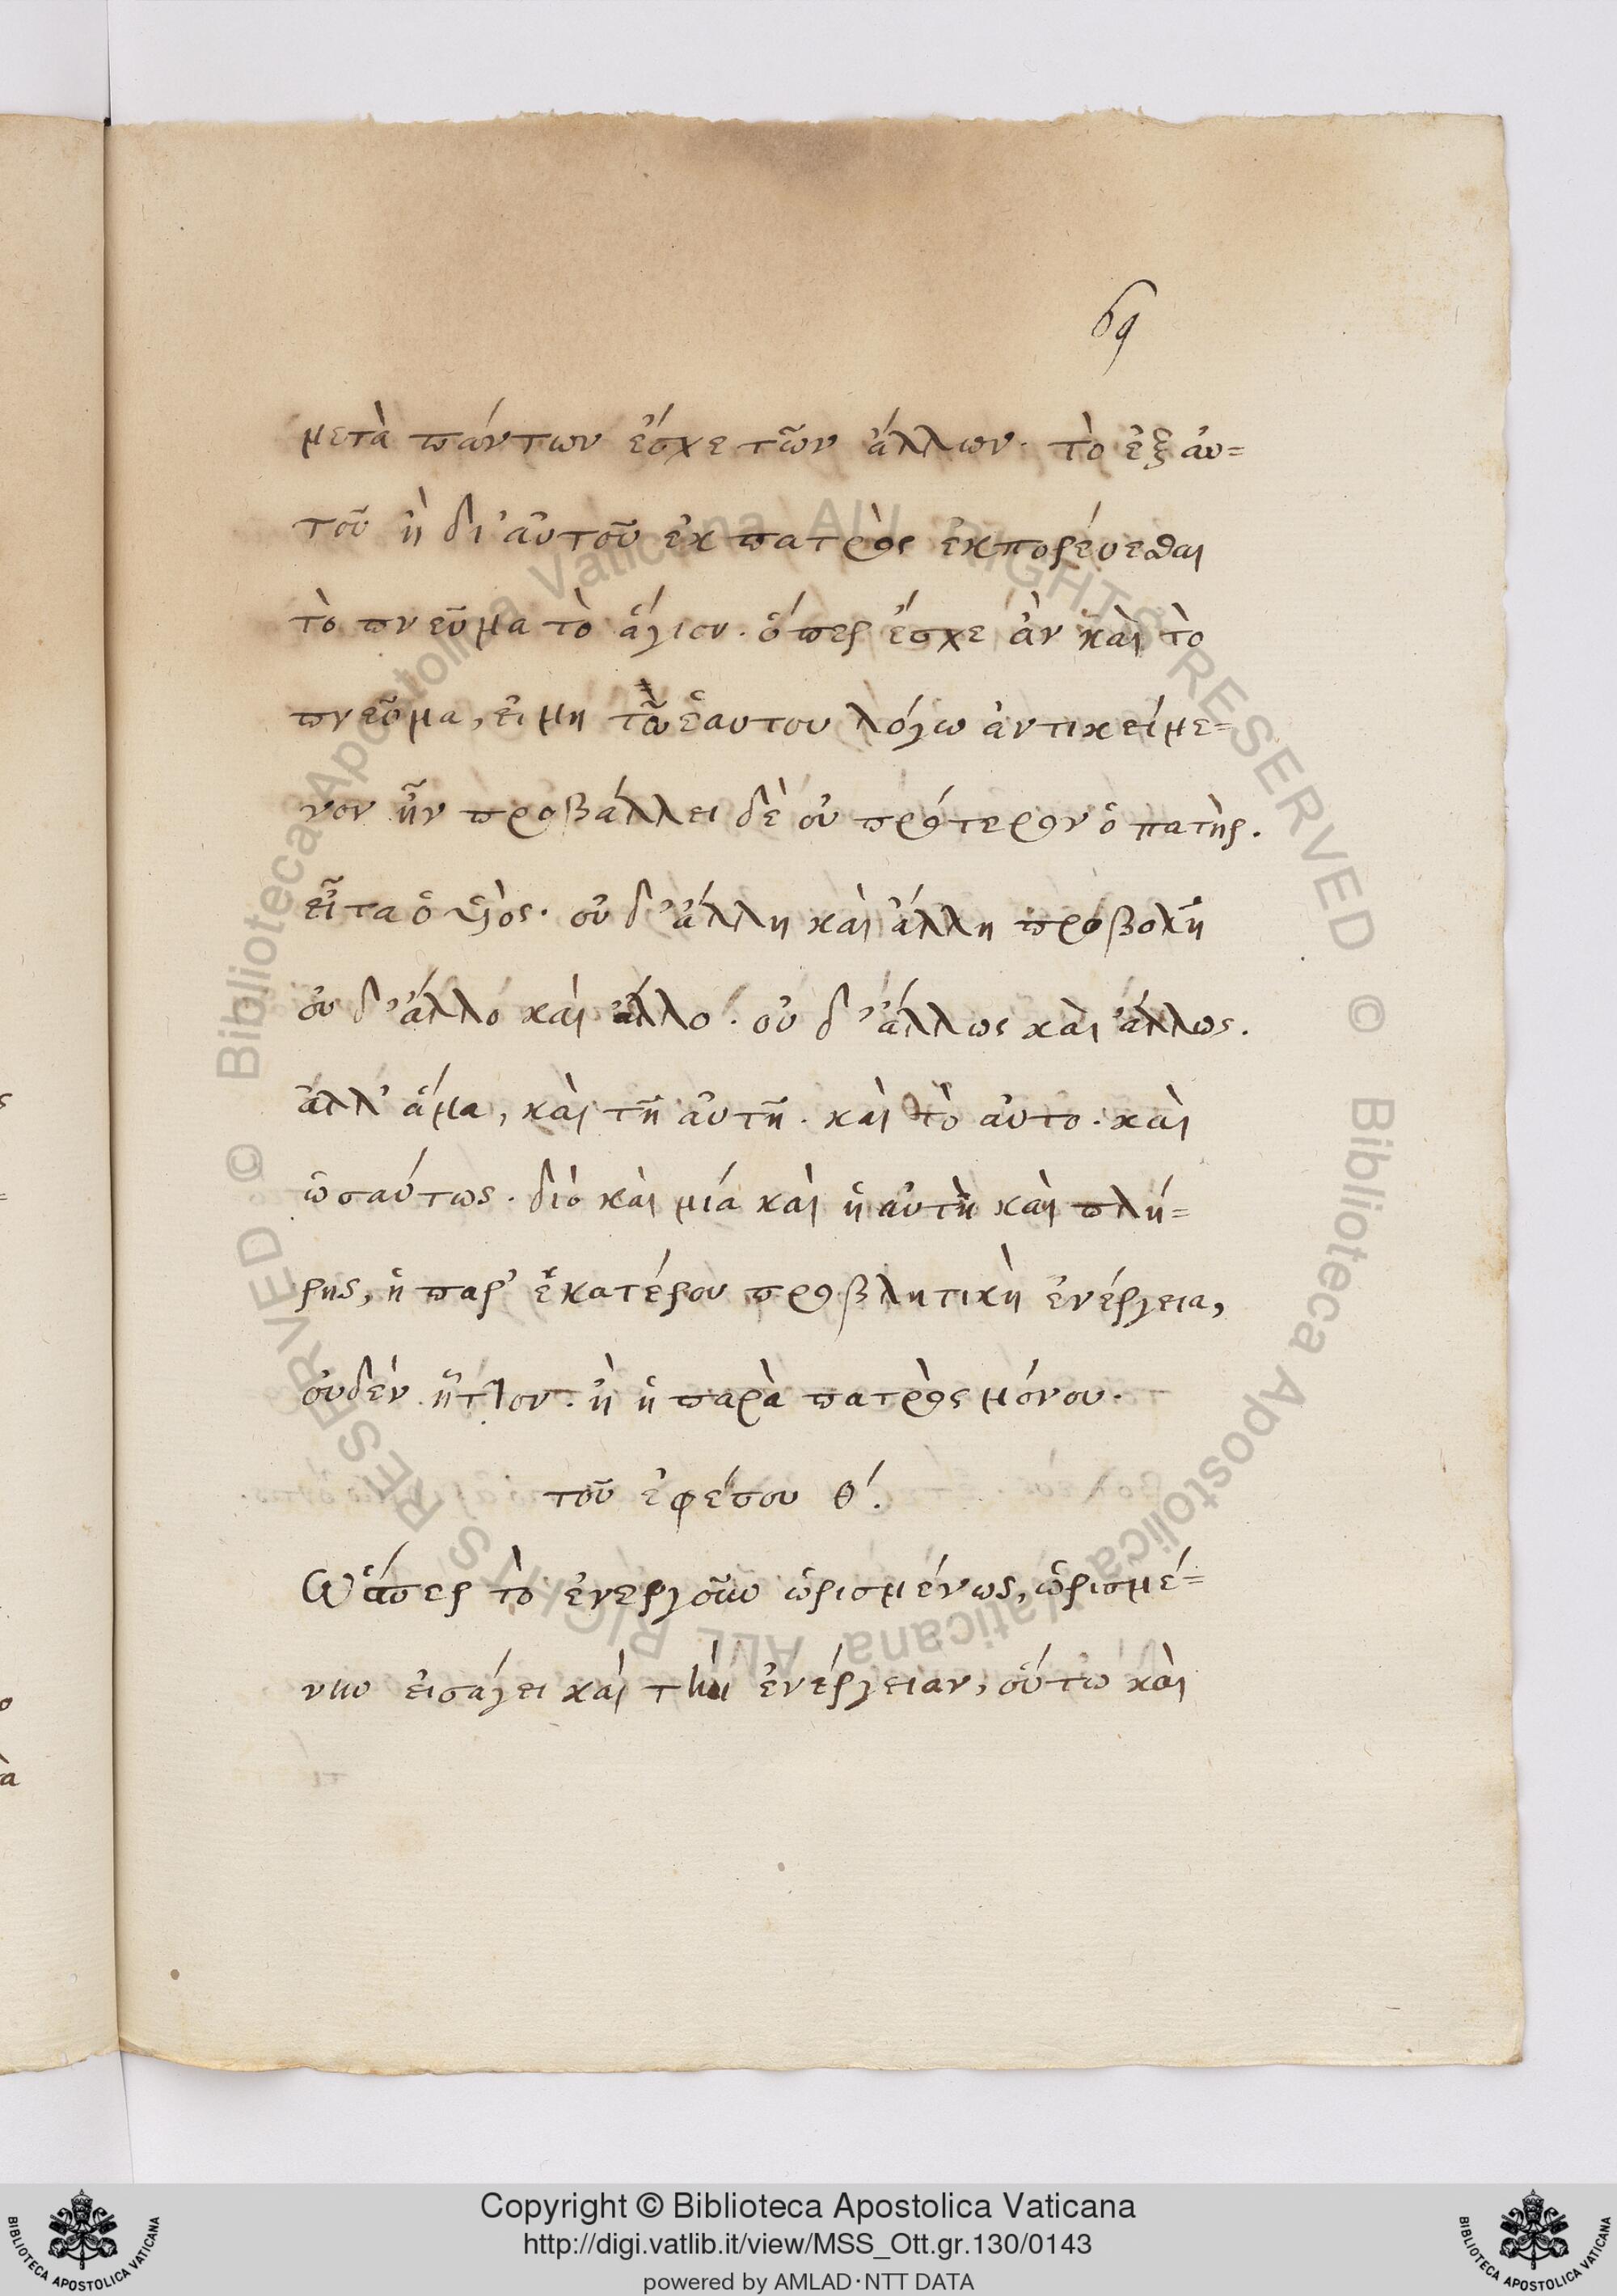 69
μετὰ πάντων ἔσχε τῶν ἄλλων· τὸ ἐξ ἀυ=
τοῦ ἢ δι' ἀυτοῦ ἐκ πατρὸς ἐκπορέυεσθαι
τὸ πνεῦμα τὸ ἅγιον· ὅπερ ἔσχε ἀν καὶ τὸ
πνεῦμα, ἐι μη τῶ ἑαυτου λόγω ἀντικείμε=
νον ἦν προβάλλει δὲ οὐ πρότερον ὁ πατὴρ.
εἶτα ὁ υἱὸς· οὐ δ' ἄλλη καὶ ἄλλη προβολῆ
οὐ δ' ἄλλο καὶ ἄλλο· οὐ δ' ἄλλως καὶ ἄλλως.
ἀλλ' ἅμα, καὶ τῆ ἀυτῆ· καὶ τὸ ἀυτο· καὶ
ὡσαύτως· διὸ καὶ μία καὶ ἡ αὐτὴ καὶ πλή=
ρης, ἡ παρ' ἑκατέρου προβλητικὴ ἐνέργεια,
οὐδὲν ἧττον· ἢ ἡ παρὰ πατρὸς μόνου·
τοῦ ἐφέσου θ΄.
Ὥσπερ τὸ ἐνεργοῦν ὡρισμένως, ὡρισμέ=
νην ἐισάγει καὶ τὴν ἐνέργειαν, οὕτω καὶ
Copyright © Biblioteca Apostolica Vaticana
http://digi.vatlib.it/view/MSS_Ott.gr.130/0143
powered by AMLAD·NTT DATA
BIBLIOTECA APOSTOLICA VATICANA
BIBLIOTECA APOSTOLICA VATICANA
© Biblioteca Apostolica Vaticana ALL RIGHTS RESERVED
© Biblioteca Apostolica Vaticana ALL RIGHTS RESERVED